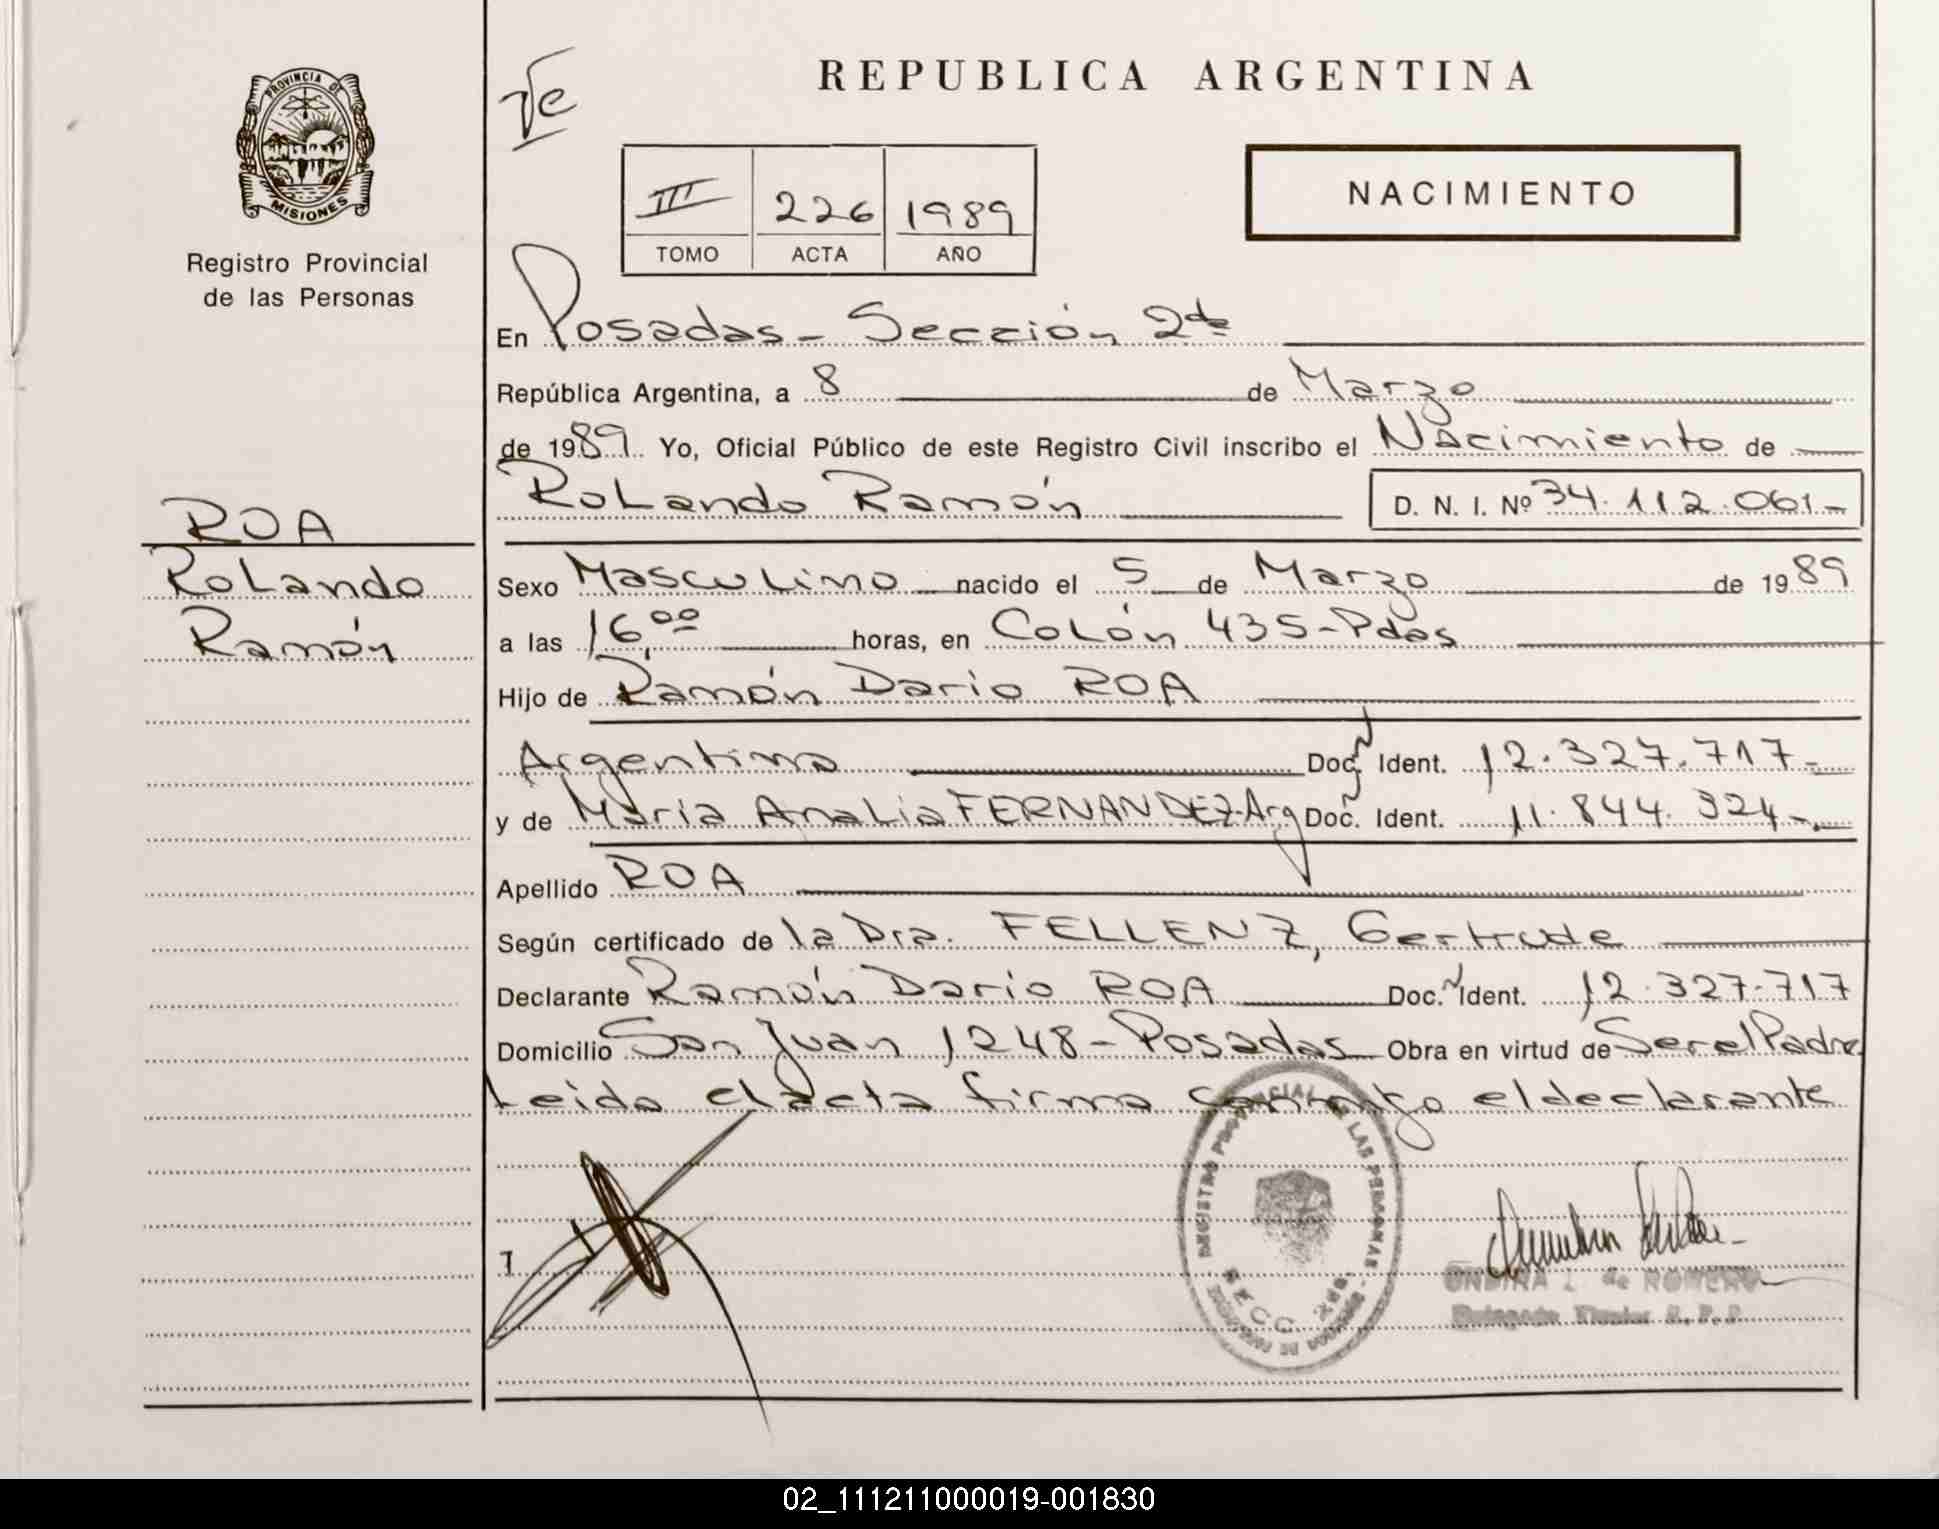 PROVINCIA DE
MISIONES
Registro Provincial
de las Personas
REPUBLICA ARGENTINA
NACIMIENTO
III 226 1989
TOMO ACTA AÑO
En Posadas - Sección 2da
República Argentina, a 8 de Marzo
de 1989. Yo, Oficial Público de este Registro Civil inscribo el Nacimiento de
Rolando Ramón D. N. I. Nº 34.112.061-
ROA
Rolando
Ramón
Sexo Masculino nacido el 5 de Marzo de 1989
a las 16,00 horas, en Colón 435-Pdas
Hijo de Ramón Dario ROA
Argentino Doc. Ident. 12.327.717-
y de María Analia FERNANDEZ-Arg Doc. Ident. 11.844.324-
Apellido ROA
Según certificado de la Dra. FELLENZ, Gertrude
Declarante Ramón Dario ROA Doc. Ident. 12.327.717
Domicilio San Juan 1248-Posadas Obra en virtud de Ser el Padre
Leida el acta firma conmigo el declarante
REGISTRO PROVINCIAL DE LAS PERSONAS
SECC. 2da.
ONDINA L. de ROMERO
02_111211000019-001830